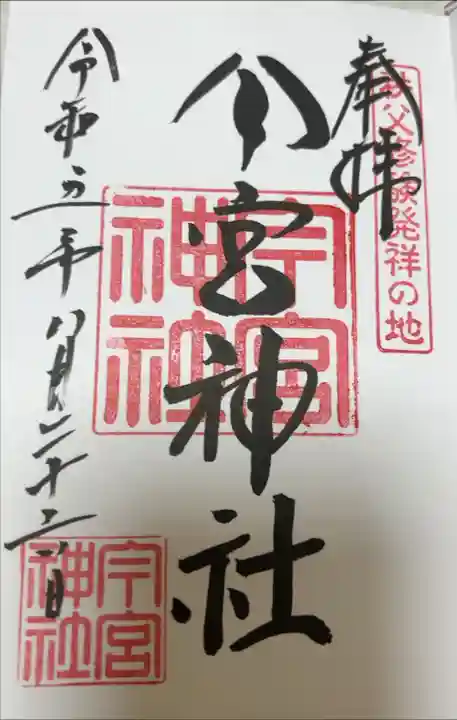 奉拝
秩父修験発祥の地
今宮神社
今宮神社
令和五年八月二十三日
今宮神社